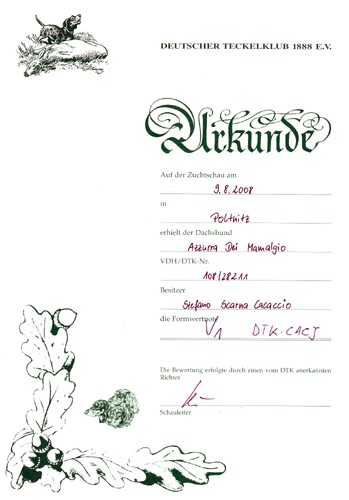 DEUTSCHER TECKELKLUB 1888 E.V.
Urkunde
Auf der Zuchtschau am
9.8.2008
in
Poltnitz
erhielt der Dachshund
Azzurra Dei Mamalgio
VDH/DTK-Nr.
108/28211
Besitzer
Stefano Scarna Cacaccio
die Formwertnote
V1 DTK.CACJ
Die Bewertung erfolgte durch einen vom DTK anerkannten
Richter
Schauleiter